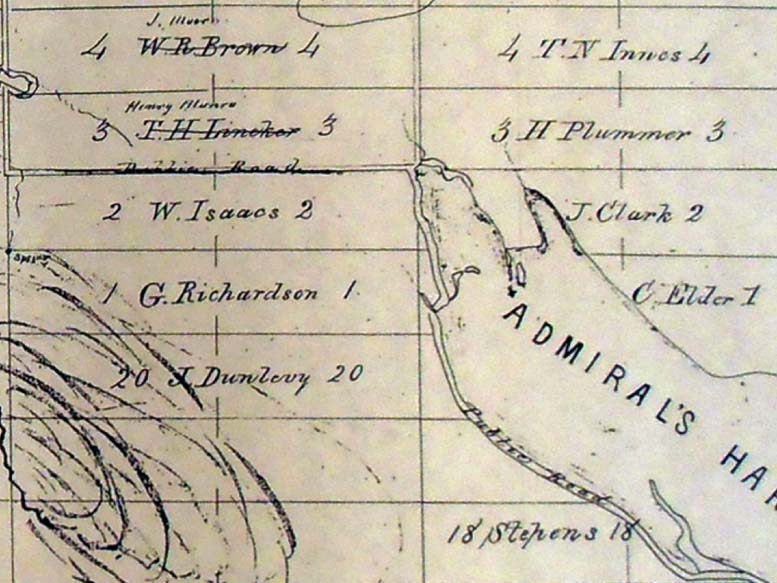 4 W. R. Brown 4
4 T. N Innes 4
Henry Munro
3 T. H Lincker 3
3 H Plummer 3
Public Road
2 W. Isaacs 2
J. Clark 2
1 G. Richardson 1
C Elder 1
ADMIRAL'S HAR
20 J. Dunlevy 20
Public Road
18 Stephens 18